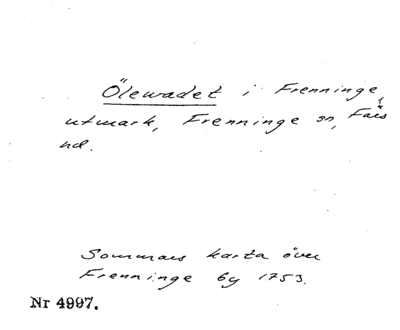 Ölewadet i Frenninge
utmark, Frenninge sn, Färs
hd.
Sommars karta över
Frenninge by 1753.
Nr 4997.